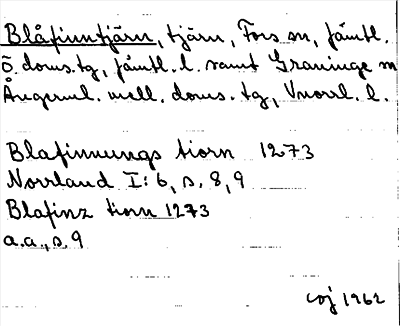 Blåfinntjärn, tjärn, Fors sn, Jämtl.
ö. doms.tg, Jämtl. l. samt Graninge sn
Ångerml. mell. doms. tg, Vnorrl. l.
Blafinnungs tiorn 1273
Norrland I: 6, s. 8, 9
Blafinz tiorn 1273
a.a., s. 9
coj 1962